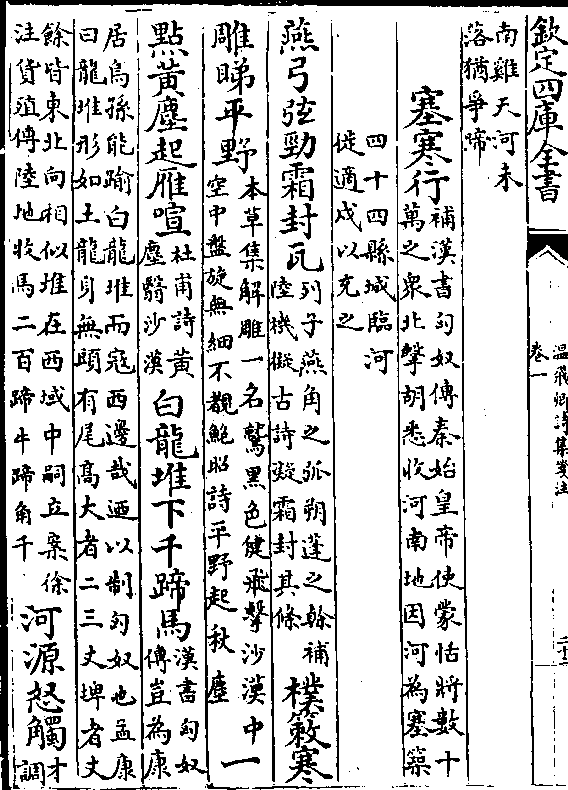 欽定四庫全書
温飛卿詩集箋注
卷一
南雞天河未
落猶爭啼
塞寒行
補漢書匈奴傳秦始皇帝使蒙恬將數十
萬之衆北擊胡悉收河南地因河為塞築
四十四縣城臨河
徙適戍以充之
燕弓弦勁霜封瓦
列子燕角之弧朔蓬之簳補
陸機擬古詩凝霜封其條
樸簌寒
雕睇平野
本草集解雕一名鷲黑色健飛擊沙漠中
空中盤旋無細不覩鮑照詩平野起秋塵
一
點黄塵起雁喧
杜甫詩黄
塵翳沙漠
白龍堆下千蹄馬
漢書匈奴
傳豈為康
居烏孫能踰白龍堆而寇西邊哉廼以制匈奴也孟康
曰龍堆形如土龍身無頭有尾高大者二三丈埤者丈
餘皆東北向相似堆在西域中嗣立案徐
注貨殖傳陸地牧馬二百蹄牛蹄角千
河源怒觸
才
調